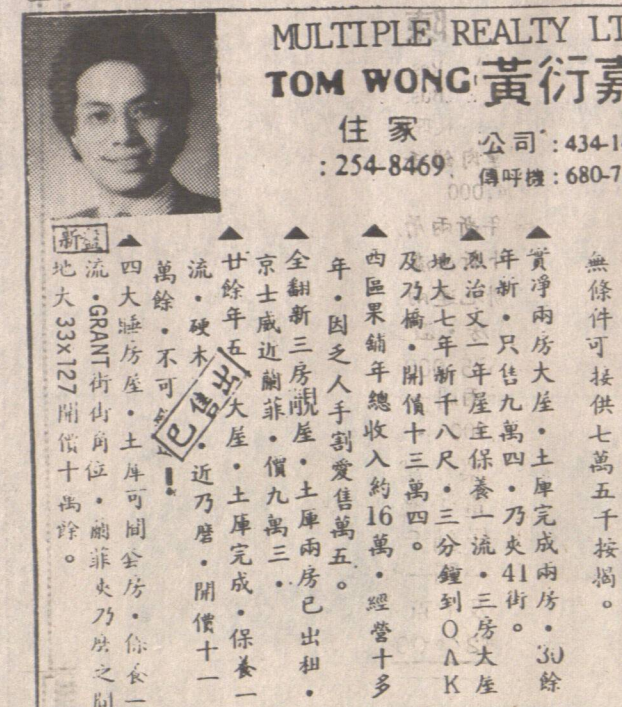 MULTIPLE REALTY LT
TOM WONG 黃衍嘉
住家
:254-8469
公司:434-1
傳呼機:680-7
無條件可接供七萬五千按揭。
▲實淨兩房大屋・土庫完成兩房・30餘
年新・只售九萬四・乃夾41街。
▲烈治文一年屋主保養一流・三房大屋
地大七年新千八尺・三分鐘到OAK
及乃橋・開價十三萬四。
▲西區果鋪年總收入約16萬・經營十多
年・因乏人手割愛售萬五。
▲全翻新三房靚屋・土庫兩房已出租・
京士威近蘭菲・價九萬三・
▲廿餘年五大屋・土庫完成・保養一
流・硬木・近乃磨・開價十一
萬餘・不可!
已售出
▲四大睡房屋・土庫可間套房・保養一
新盤
流・GRANT街山角位・蘭菲夾乃磨之間
地大33x127開價十萬餘。